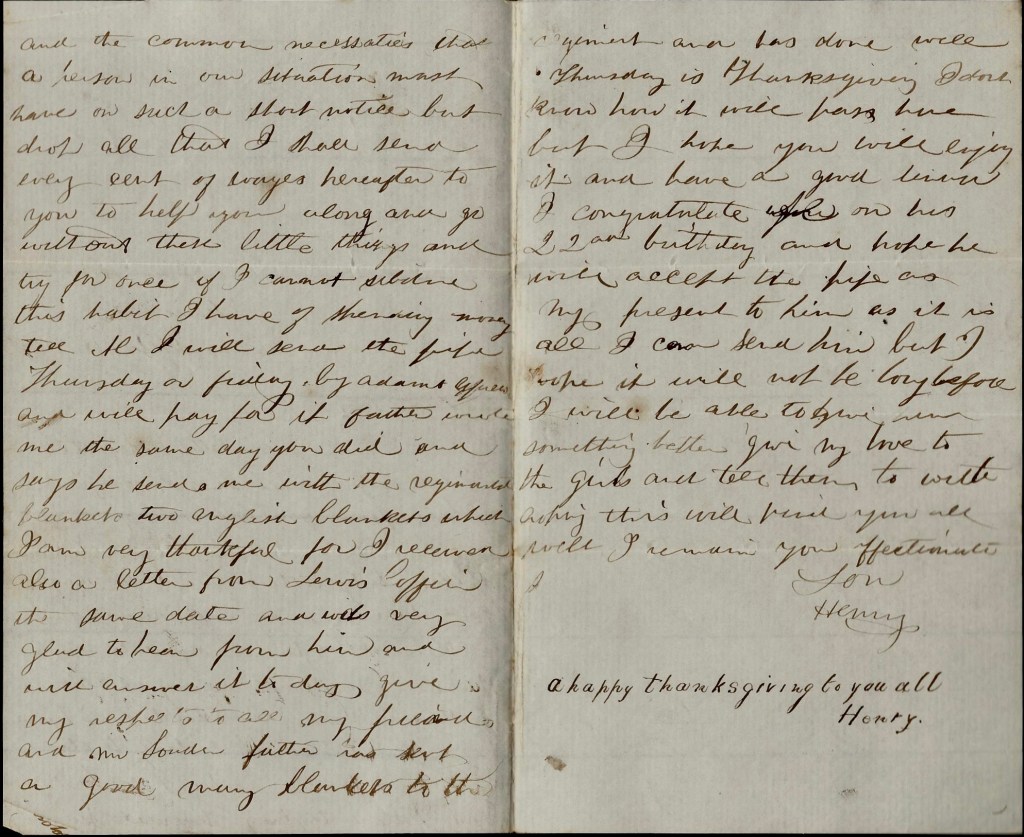 and the common necessaties that
a person in our situation must
have on such a short notice but
drop all that I shall send
every cent of wages hereafter to
you to help you along and go
without these little things and
try for once if I cannot subdue
this habit I have of spending money
tell Al I will send the pipe
Thursday or friday by adams Express
and will pay for it father wrote
me the same day you did and
says he sends me with the regimental
blankets two english blankets which
I am very thankful for I received
also a letter from Lewis Coffin
the same date and was very
glad to hear from him and
will answer it to day give
my respets to all my friends
and mr father has sent
a good many blankets to the
regiment and has done well
Thursday is Thanksgiving I dont
know how it will pass here
but I hope you will enjoy
it and have a good time
I congratulate on his
22nd birthday and hope he
will accept the pipe as
my present to him as it is
all I can send him but I
hope it will not be long before
I will be able to give him
something better give my love to
the girls and tell them to write
hoping this will find you all
well I remain you ffectionate
Son
Henry
a happy thanksgiving to you all
Henry.